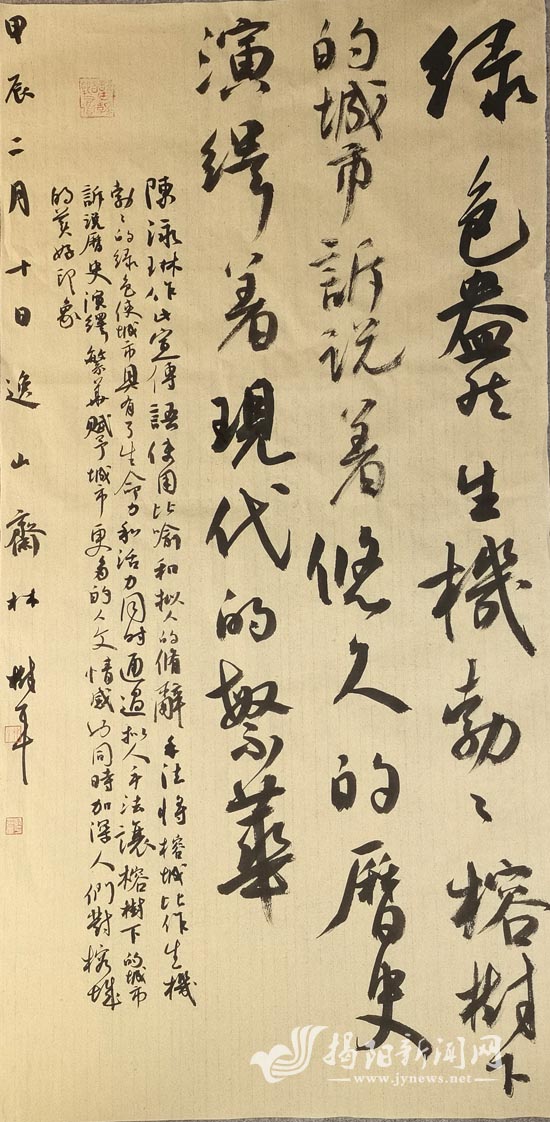 绿色盎然生機勃〻榕樹下
的城市訴说着悠久的曆史
演绎着現代的繁華
陳泳琳作此宣傳語使用比喻和拟人的脩辭手法将榕城比作生機
勃〻的绿色使城市具有了生命力和活力同时通過拟人手法讓榕樹下的城市
訴説曆史演繹繁華赋予城市更多的人文情感的同時加深人們對榕城
的美好印象
甲辰二月十日逸山齋林樹
揭阳新闻网
www.jynews.net